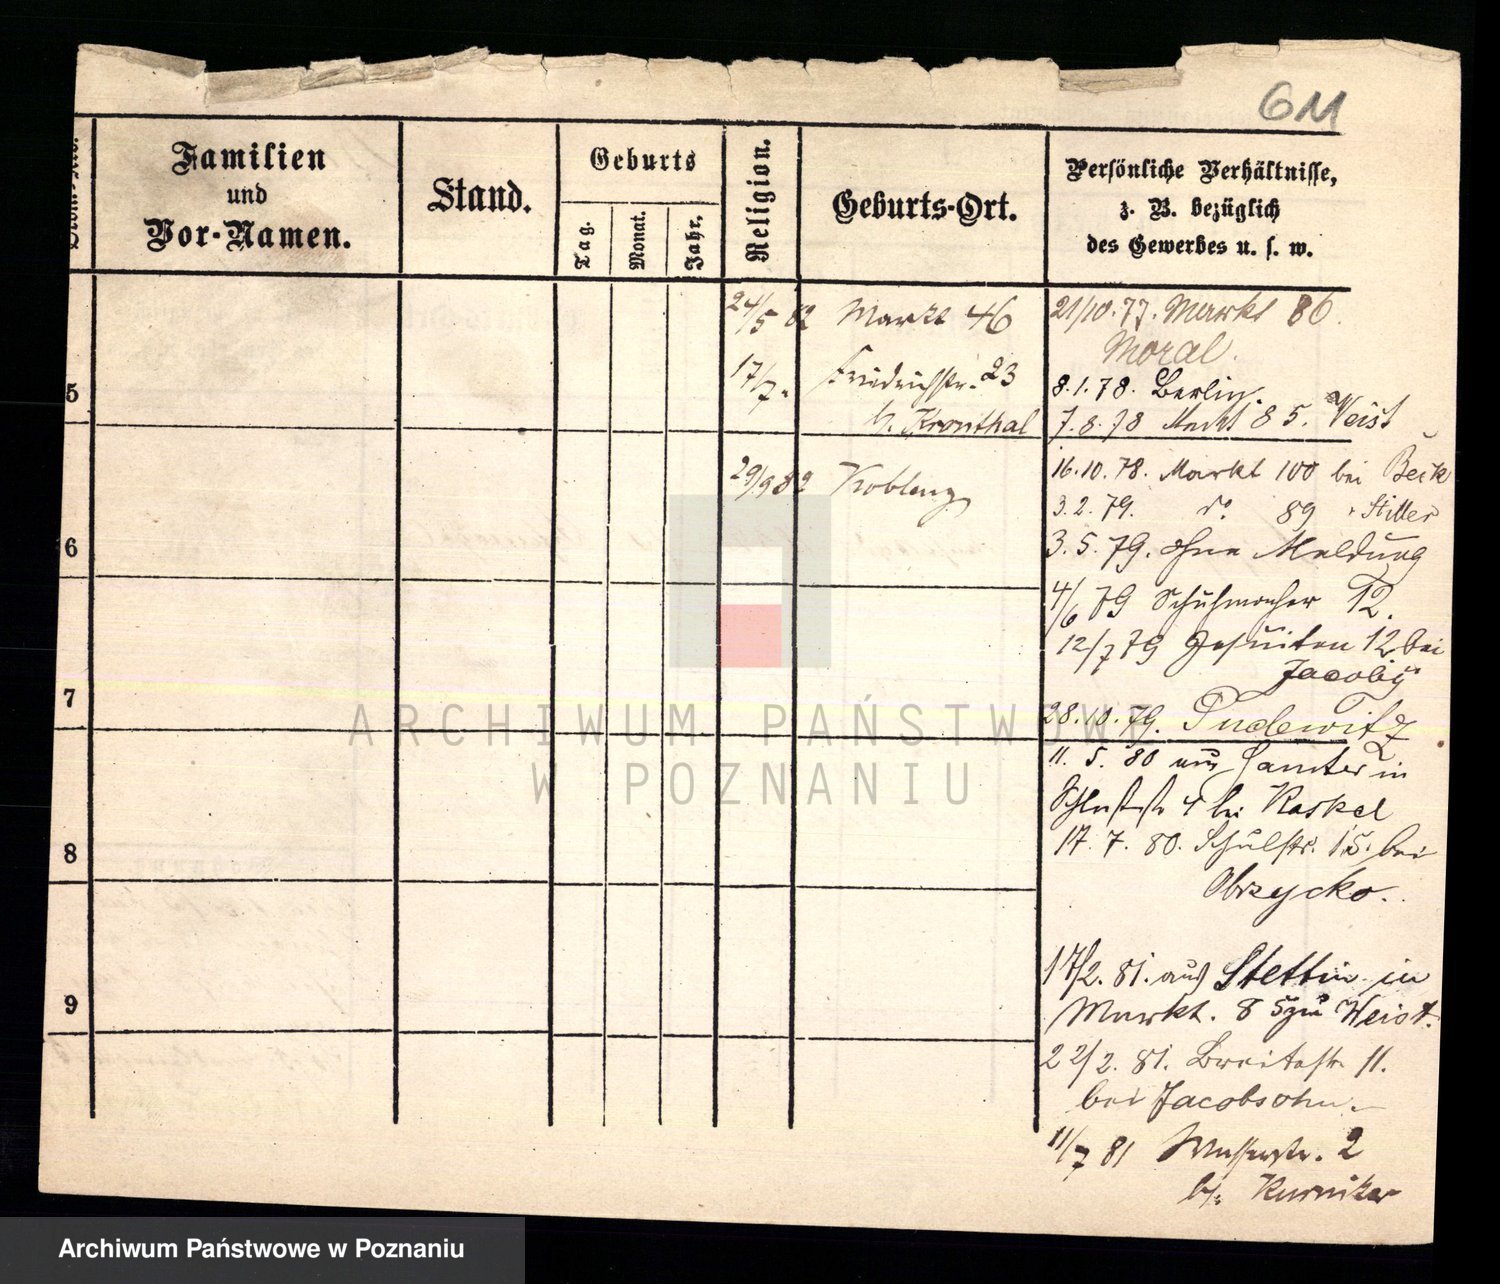 611
Familien
und
Vor-Namen.
Stand.
Geburts
Tag.
Monat.
Jahr.
Religion.
Geburts-Ort.
Persönliche Verhältnisse,
z. B. bezüglich
des Gewerbes u. s. w.
5
6
7
8
9
24/5 82 Markt 46
17/7. Friedrichstr. 23
b. Kronthal
29/9 82 Koblenz
21/10.77. Markt 86.
Moral.
8.1.78. Berlin.
7.8.78 Markt 85. Weist
16.10.78. Markt 100 bei Beck
3.2.79. do 89 " Stiller
3.5.79. ohne Meldung
4/6 79 Schuhmacher 12.
12/7 79 Jesuiten 12 bei
Jacoby
28.10.79. Pudewitz
11. 5. 80 aus Samter in
4 bei Kaskel
17. 7. 80. Schulstr. 15. bei
Obrzycko.
17/2. 81. aus Stettin in
Markt. 85 zu Weist.
22/2. 81. Breitestr 11.
bei Jacobsohn.
11/7 81 Wasserstr. 2
b. Kurniker
ARCHIWUM PAŃSTWOWE
W POZNANIU
Archiwum Państwowe w Poznaniu